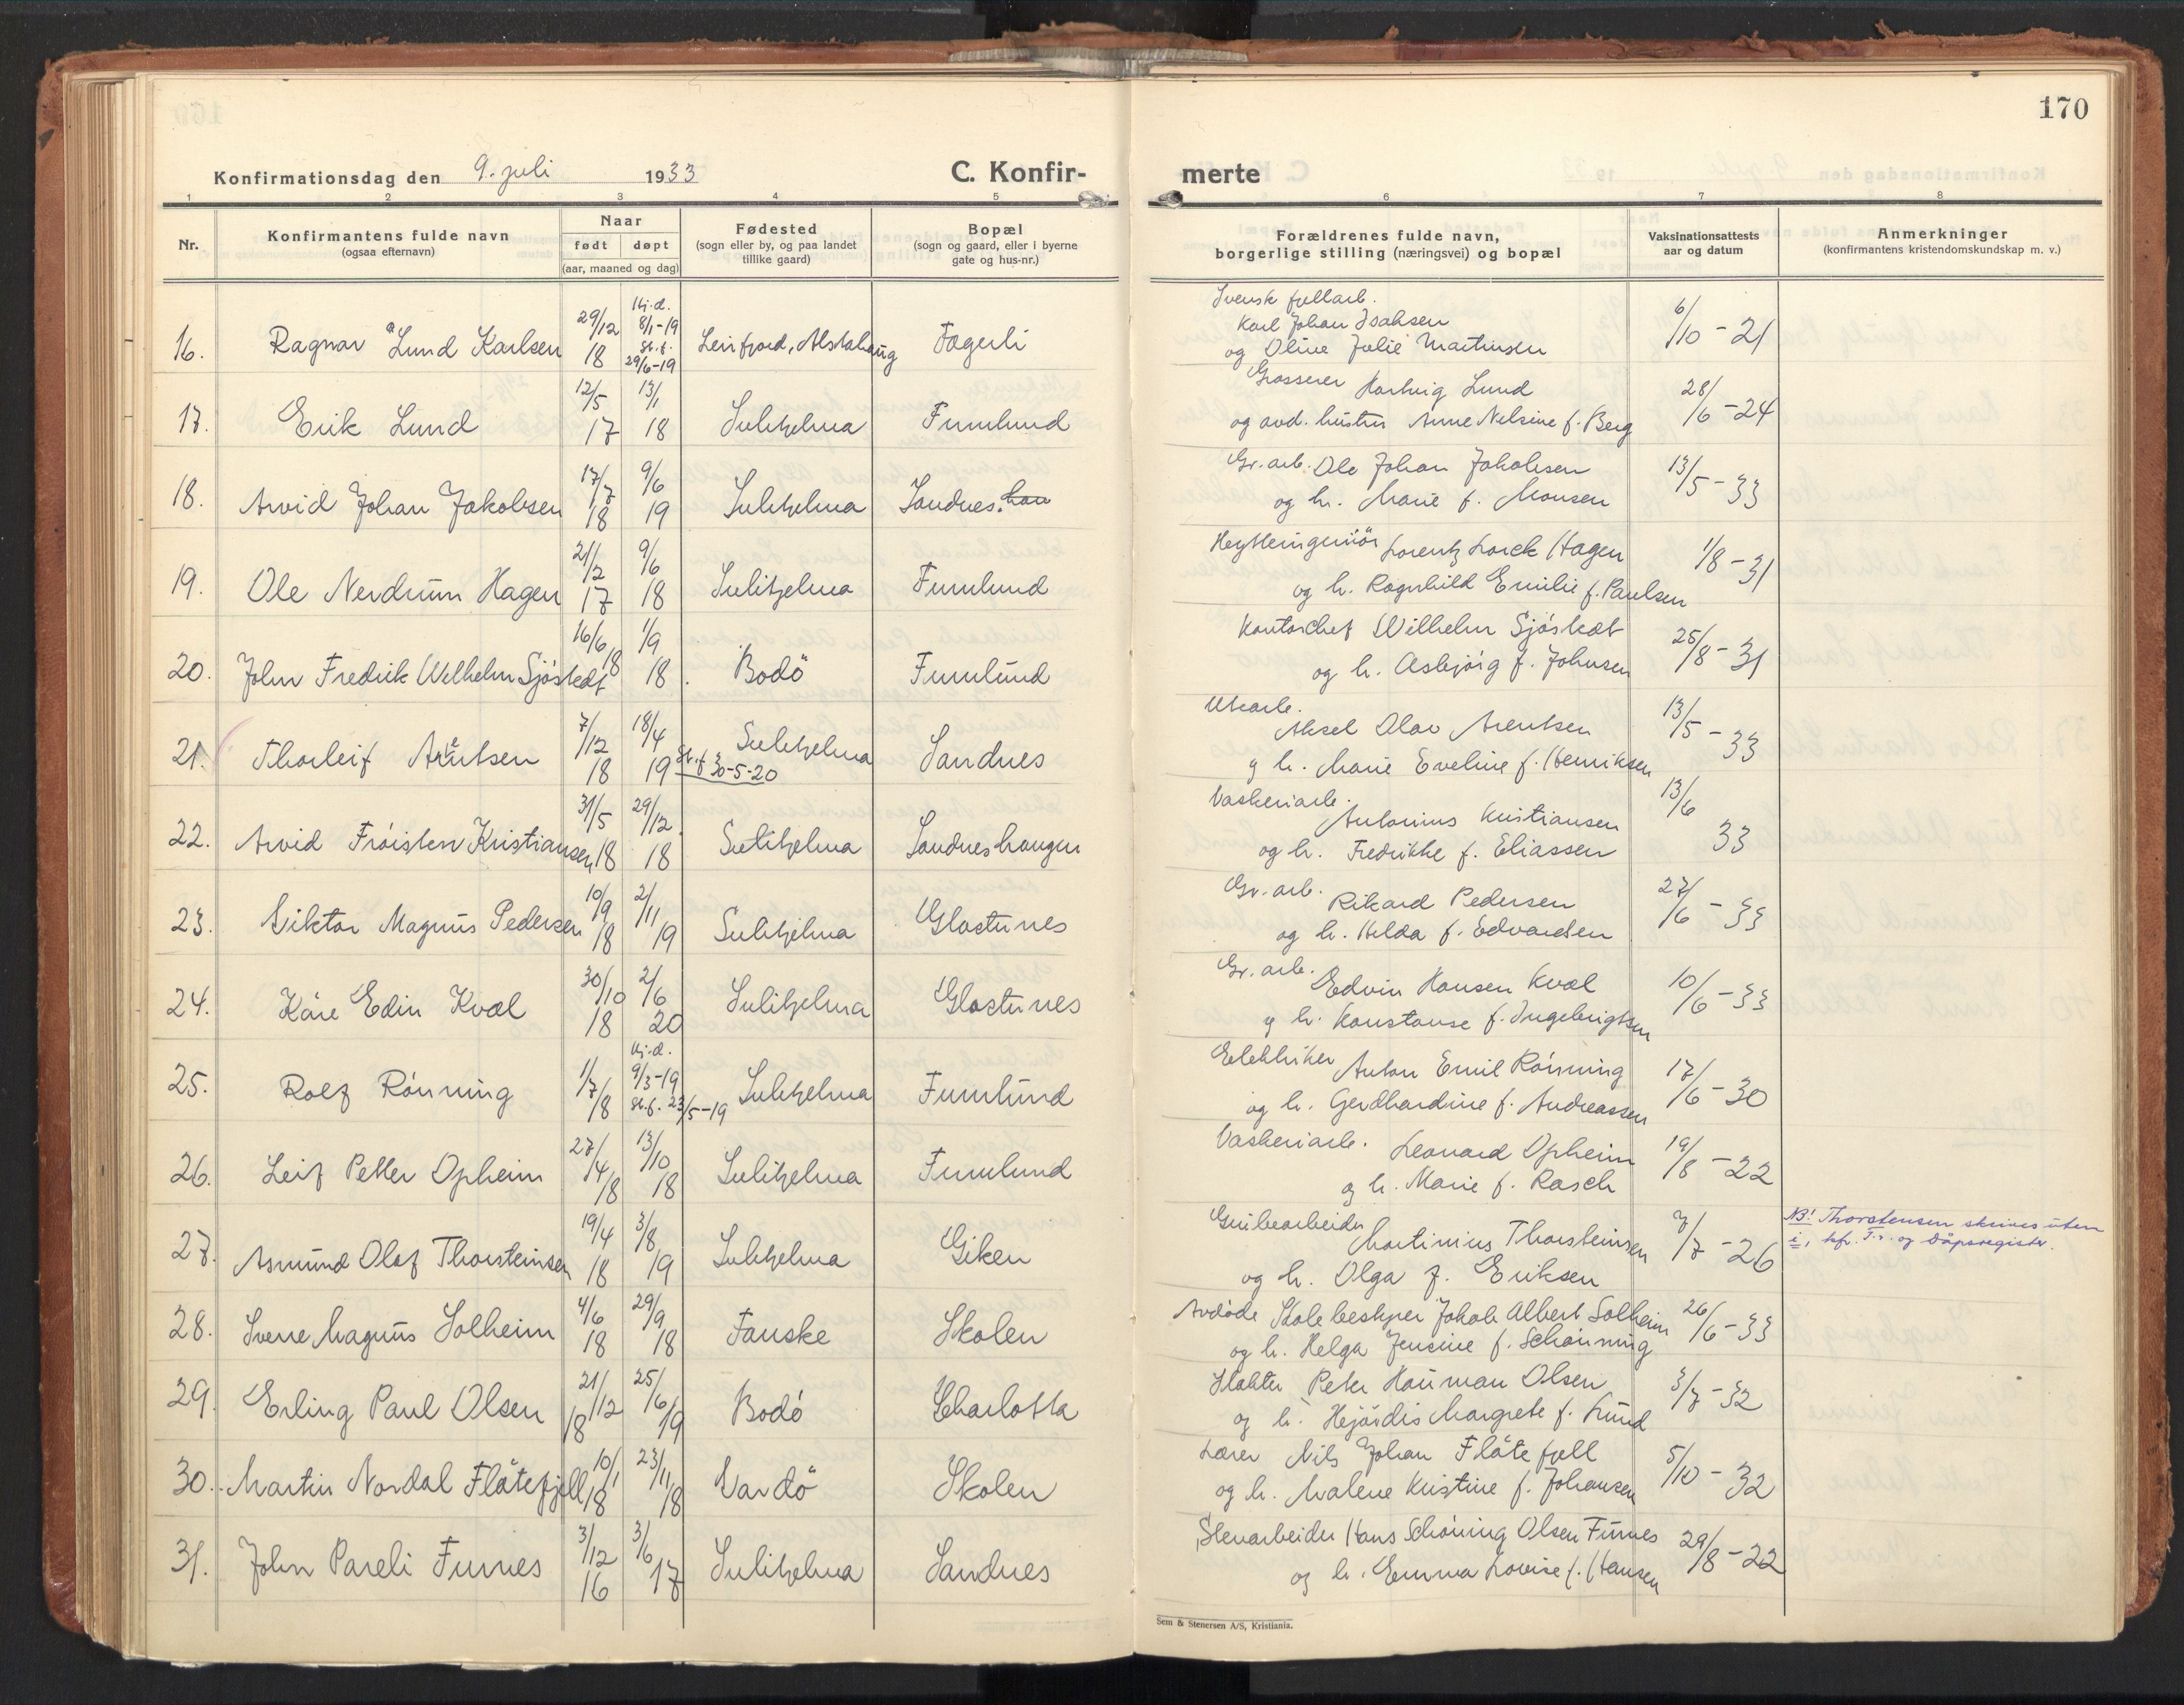 170
Konfirmationsdag den 9. juli 1933 C. Konfir-
merte
1 2 3 4 5 6 7 8
Nr. Konfirmantens fulde navn (ogsaa efternavn) Naar født døpt (aar, maaned og dag) Fødested (sogn eller by, og paa landet tillike gaard) Bopæl (sogn og gaard, eller i byerne gate og hus-nr.)
Forældrenes fulde navn, borgerlige stilling (næringsvei) og bopæl Vaksinationsattests aar og datum Anmerkninger (konfirmantens kristendomskundskap m. v.)
16. Ragnar Lund Karlsen 29/12 18 Hj.d. 8/1-19 St.f. 29/6-19 Leirfjord, Alstahaug Fagerli
Svensk fjellarb.
Karl Johan Isaksen
og Oline Julie Martinsen 6/10-21
17. Erik Lund 12/5 17 13/1 18 Sulitjelma Furulund
Grosserer Hartvig Lund
og avd. hustru Anne Nelsine f. Berg 28/6-24
18. Arvid Johan Jakobsen 17/7 18 9/6 19 Sulitjelma Sandnes.
Gr.arb. Ole Johan Jakobsen
og h. Marie f. Monsen 13/5-33
19. Ole Nerdrum Hagen 21/2 17 9/6 18 Sulitjelma Furulund
Hytteingeniör Lorentz Lorck Hagen
og h. Ragnhild Emilie f. Paulsen 1/8-31
20. John Fredrik Wilhelm Sjöstedt 16/6 18 1/9 18. Bodö Furulund
Kontorchef Wilhelm Sjöstedt
og h. Asbjörg f. Johnsen 25/8-31
21. Thorleif Arentsen 7/12 18 18/4 19 St.f 30-5-20 Sulitjelma Sandnes
Utearb.
Aksel Olav Arentsen
g h. Marie Eveline f. Henriksen 13/5-33
22. Arvid Fröisten Kristiansen 31/5 18 29/12 18 Sulitjelma Sandneshaugen
Vaskeriarb.
Antonius Kristiansen
og h. Fredrikke f. Eliassen 13/6 33
23. Viktor Magnus Pedersen 10/9 18 2/11 19 Sulitjelma Glastunes
Gr.arb.
Rikard Pedersen
og h. Hilda f. Edvardsen 27/6-33
24. Kåre Edin Kval 30/10 18 2/6 20 Sulitjelma Glastunes
Gr.arb.
Edvin Hansen Kval
g h. Konstanse f. Ingebrigtsen 10/6-33
25. Rolf Rönning 1/7 18 Hj.d. 9/3-19 St.f. 23/5-19 Sulitjelma Furulund
Elektriker Anton Emil Rönning
og h. Gerdhardine f. Andreassen 17/6-30
26. Leif Petter Opheim 27/4 18 13/10 18 Sulitjelma Furulund
Vaskeriarb. Leonard Opheim
og h. Marie f. Rasch 19/8-22
27. Asmund Olaf Thorsteinsen 19/4 18 3/8 19 Sulitjelma Giken
Grubearbeider Martinius Thorsteinsen
og h. Olga f. Eriksen 7/7-26
NB! Thorstensen skrives uten
i, kfr. F.r. og Dåpsregister.
28. Sverre Magnus Solheim 4/6 18 29/9 18 Fauske Skolen
Avdöde Skolebestyrer Jakob Albert Solheim
og h. Helga Jensine f. Schönning 26/6-33
29. Erling Paul Olsen 21/12 18 25/6 19 Bodö Charlotta
Slakter Peter Hauman Olsen
og h. Hejördis Margrete f. Lund 3/7-32
30. Martin Nordal Flåtefjell 10/1 18 23/11 18 Vardö Skolen
Lærer Nils Johan Flåtefjell
og h. Malene Kristine f. Johansen 5/10-32
31. John Pareli Furnes 3/12 16 3/6 17 Sulitjelma Sandnes
Stenarbeider Hans Schöning Olsen Furnes
og h. Emma Lovise f. Hansen 29/8-22
Sem & Stenersen A/S, Kristiania.